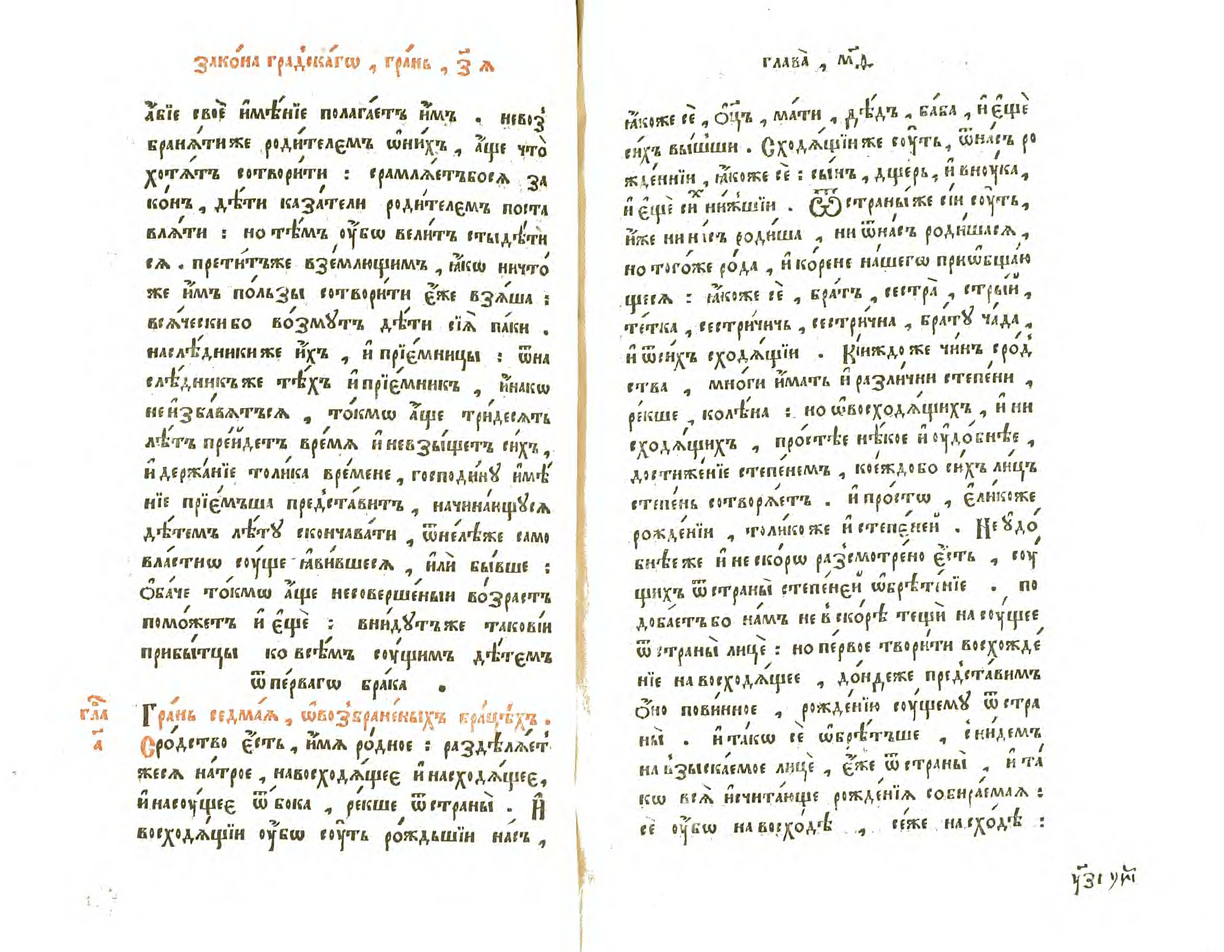 Зако́на гра́дскагѡ , гра́нь , з҃ ꙗ
а҆́бїе своѐ и҆мѣ́нїе полага́етъ и҆̀мъ . невоз
браня́тиже роди́телемъ ѡ҆ни́хъ , а҆́ще что̀
хотя́тъ сотвори́ти : срамля́етъбося за
ко́нъ , дѣ́ти каза́тели роди́телемъ поста
вля́ти : но тѣ́мъ ᲂу҆́бѡ вели́тъ стыдѣ́ти
ся . прети́тъже взе́млющимъ , ꙗ҆́кѡ ничто́
же и҆̀мъ по́льзы сотвори́ти є҆́же взя́ша :
вся́ческибо во́змꙋтъ дѣ́ти сїѧ̀ па́ки .
наслѣ́дникиже и҆́хъ , и҆ прїе́мницы : ѿна
слѣ́дникъже тѣ́хъ и҆ прїе́мникъ , и҆́накѡ
не и҆збавя́тъся , то́кмѡ а҆́ще три́десять
лѣ́тъ пре́йдетъ вре́мѧ и҆ невзы́щетъ си́хъ ,
и҆ держа́нїе толи́ка вре́мене , господи́нꙋ и҆мѣ́
нїе прїе́мъша предста́витъ , начина́ющꙋся
дѣ́темъ лѣ́тꙋ сконча́вати , ѿне́лѣже само
вла́стнѡ сꙋ́ще ꙗ҆ви́вшеся , и҆лѝ бы́вше :
Ѻ҆ба́че то́кмѡ а҆́ще несоверше́ныи во́зрастъ
помо́жетъ и҆ є҆щѐ : вни́дꙋтъже такові́и
прибы́тцы ко всѣ́мъ сꙋ́щимъ дѣ́темъ
ѿ пе́рвагѡ бра́ка .
гла҃ а҃
Гра́нь седма́ѧ , ѡ҆возбране́ныхъ бра́цѣхъ .
Сро́дство є҆́сть , и҆́мѧ ро́дное : раздѣля́ет
жеся на́трое , навосходя́щее и҆ насходя́щее ,
и҆ насꙋ́щее ѿ бо́ка , ре́кше ѿ страны̀ . И҆
восходя́щїи ᲂу҆́бѡ сꙋ́ть ро́ждьшїи на́съ ,
глава̀ , м҃д
ꙗ҆́коже сѐ , ѻ҆ц҃ъ , ма́ти , дѣ́дъ , ба́ба , и҆ є҆щѐ
си́хъ вы́шши . Сходя́щїиже сꙋ́ть , ѿна́съ ро
жде́ннїи , ꙗ҆́коже сѐ : сы́нъ , дще́рь , и҆ внꙋ́ка ,
и҆ є҆щѐ си́х ни́жшїи . Ѿ страны́же сі́и сꙋ́ть ,
и҆́же ни на́съ роди́ша , ни ѿна́съ роди́шася ,
но того́же ро́да , и҆ ко́рене на́шегѡ приѡбща́ю
щеся : ꙗ҆́коже сѐ , бра́тъ , сестра̀ , стры́й ,
те́тка , сестри́чичь , сестри́чна , бра́тꙋ ча́да ,
и҆ ѿси́хъ сходя́щїи . Кі́иждо же чи́нъ сро́д
ства , мно́ги и҆́мать и҆ разли́чни степе́ни ,
ре́кше , колѣ́на : но ѡ҆восходя́щихъ , и҆ ни
сходя́щихъ , про́стѣе нѣ́кое и҆ ᲂу҆до́бнѣе ,
достиже́нїе степе́немъ , кое́ждобо си́хъ ли́цъ
степе́нь сотворя́етъ . и҆ про́стѡ , є҆ли́коже
рожде́нїи , толи́коже и҆ степене́й . Не ᲂу҆до́
бнѣеже и҆ не ско́рѡ разсмотре́но є҆́сть , сꙋ́
щихъ ѿ страны̀ степене́й ѡ҆брѣте́нїе . по
доба́етъбо на́мъ не вско́рѣ тещѝ на сꙋ́щее
ѿ страны̀ лицѐ : но пе́рвое твори́ти восхожде́
нїе на восходя́щее , до́ндеже предста́вимъ
Ѻ҆́но пови́нное , рожде́нїю сꙋ́щемꙋ ѿ стра
ны̀ . и҆ та́кѡ сѐ ѡ҆брѣ́тъше , сни́демъ
на взыска́емое лицѐ , є҆́же ѿ страны̀ , и҆ та́
кѡ всѧ̀ и҆счита́юще рожде́нїѧ собира́емаѧ :
сѐ ᲂу҆́бѡ на восхо́дѣ , се́же на схо́дѣ :